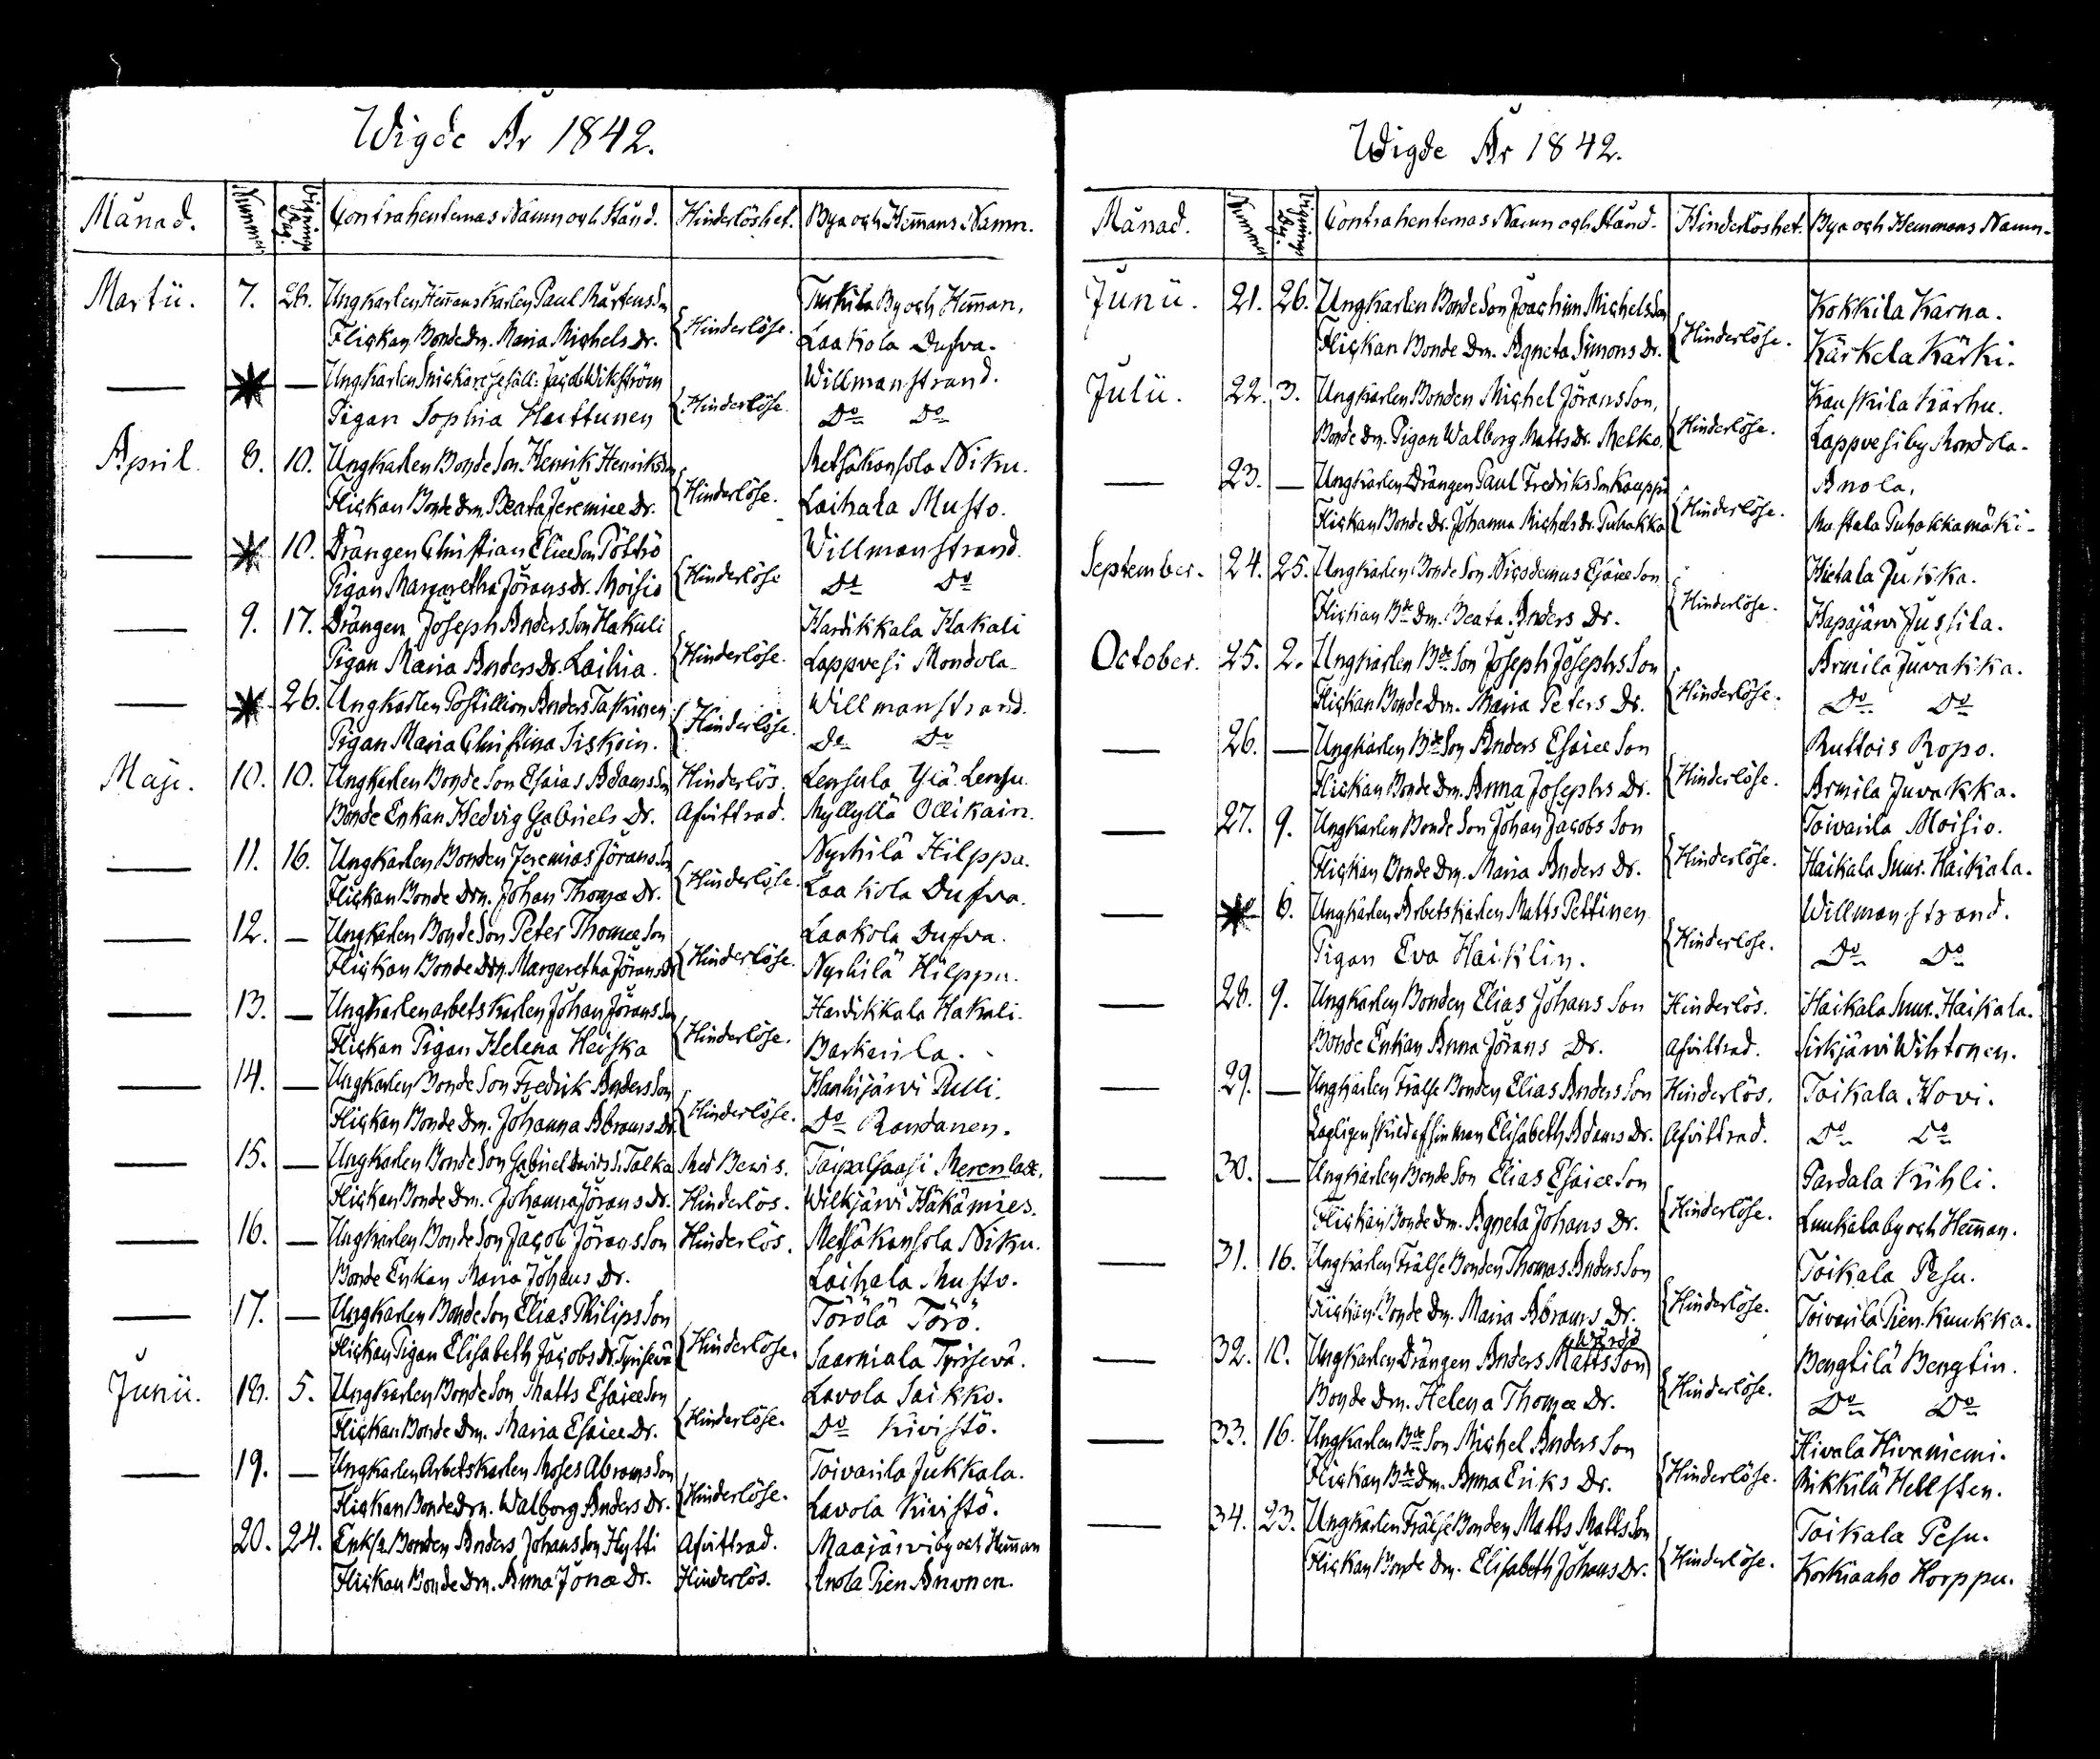 Wigde År 1842.
Månad. Nummer Vignings Dag. Contrahenternas Namn och Stånd. Hinderlöshet. Bya och Hem̄ans Namn.
Martii. 7. 28. Ungkarlen Hem̄ans Karlen Paul Mårtens Son Turkila By och Hem̄an.
Flickan Bonde Dm. Maria Michels Dr. Hinderlöse. Laakola Dufva.
— — Ungkarlen Snickare Gesäll: Jacob Wikström Willmanstrand.
Pigan Sophia Haittunen Hinderlöse. Do Do
April. 8. 10. Ungkarlen Bonde Son Henrik Henriks Son Metsäkansola Niku.
Flickan Bonde Dm. Beata Jeremiæ Dr. Hinderlöse. Laihala Musto.
— 10. Drängen Christian Eliæ Son Pöthö Willmanstrand.
Pigan Margaretha Jörans Dr. Moisio Hinderlöse Do Do
— 9. 17. Drängen Joseph Anders Son Hakuli Hardikkala Hakali
Pigan Maria Anders Dr. Laihia. Hinderlöse. Lappvesi Mondola
— 26. Ungkarlen Postillion Anders Taskinen Willmanstrand.
Pigan Maria Christina Siskoin. Hinderlöse. Do Do
Maji. 10. 10. Ungkarlen Bonde Son Esaias Adams Son Hinderlös. Lensula Yiä. Lensu.
Bonde Enkan Hedvig Gabriels Dr. Afvittrad. Myllylä Ollikain.
— 11. 16. Ungkarlen Bonden Jeremias Jörans Son Nyrhilä Hilppa.
Flickan Bonde Drn. Johan Thomæ Dr. Hinderlöse. Laakola Dufva.
— 12. — Ungkarlen Bonde Son Peter Thomæ Son Laakola Duffva.
Flickan Bonde Drn. Margaretha Jörans Dr Hinderlöse. Nyrhilä Hilppa.
— 13. — Ungkarlen arbetskarlen Johan Jörans Son Hardikkala Hakali.
Flickan Pigan Helena Heiska Hinderlöse. Barkarila.
— 14. — Ungkarlen Bonde Son Fredrik Anders Son Hanhijärvi Pulli.
Flickan Bonde Dm. Johanna Abrams Dr Hinderlöse. Do Rondanen.
— 15. — Ungkarlen Bonde Son Gabriel Davids S. Talka Med Bewis. Taipalsaari Merenlax.
Flickan Bonde Dm. Johanna Jörans Dr. Hinderlös. Wilkjärvi Häkämies.
— 16. — Ungkarlen Bonde Son Jacob Jörans Son Hinderlös. Metsäkansola Niku.
Bonde Enkan Maria Johans Dr. Laihala Musto.
— 17. — Ungkarlen Bonde Son Elias Philips Son Törölä Törö.
Flickan Pigan Elisabeth Jacobs Dr. Tyrisevä Hinderlöse. Saarniala Tyrisevä.
Junii. 18. 5. Ungkarlen Bonde Son Matts Esaiæ Son Lavola Saikko.
Flickan Bonde Dm. Maria Esaiæ Dr. Hinderlöse. Do Kivistö.
— 19. — Ungkarlen Arbetskarlen Moses Abrams Son Toivarila Jukkala.
Flickan Bonde Drn. Walborg Anders Dr. Hinderlöse. Lavola Kivistö.
20. 24. Bonden Anders Johans Son Hytti Afvittrad. Maajärvi by och Hem̄an
Flickan Bonde Drn. Anna Jonæ Dr. Hinderlös. Anola Pien Anonen.
Wigde År 1842.
Månad. Nummer Vignings Dag. Contrahenternas Namn och Stånd. Hinderlöshet. Bya och Hemmans Namn.
Junii. 21. 26. Ungkarlen Bonde Son Joachim Michels Son Kokkila Karna.
Flickan Bonde Dm. Agneta Simons Dr. Hinderlöse. Kärkela Kärki.
Julii. 22. 3. Ungkarlen Bonden Michel Jörans Son, Kauskila Karhu.
Bonde Dm. Pigan Walborg Matts Dr. Melko. Hinderlöse. Lappvesi by Mondola.
— 23. — Ungkarlen Drängen Paul Fredriks Son Kauppi Anola.
Flickan Bonde Dr. Johanna Michels Dr. Puhakka Hinderlöse. Mastala Puhakkamäki.
September. 24. 25. Ungkarlen Bonde Son Nicodemus Esaiæ Son Hietala Jukka.
Flickan Bde Dm. Beata Anders Dr. Hinderlöse. Hapajärvi Jussila.
October. 25. 2. Ungkarlen Bde Son Joseph Josephs Son Armila Juvakka.
Flickan Bonde Dm. Maria Peters Dr. Hinderlöse. Do Do
— 26. — Ungkarlen Bde Son Anders Esaiæ Son Ruttois Ropo.
Flickan Bonde Dm. Anna Josephs Dr. Hinderlöse. Armila Juvakka.
— 27. 9. Ungkarlen Bonde Son Johan Jacobs Son Toivarila Moisio.
Flickan Bonde Dm. Maria Anders Dr. Hinderlöse. Haikala Suur. Haikala.
— 6. Ungkarlen Arbetskarlen Matts Pettinen Willmanstrand.
Pigan Eva Haiklin. Hinderlöse. Do Do
— 28. 9. Ungkarlen Bonden Elias Johans Son Hinderlös. Haikala Suur. Haikala.
Bonde Enkan Anna Jörans Dr. Afvittrad. Sirkjärvi Wihtonen.
— 29. — Ungkarlen Frälse Bonden Elias Anders Son Hinderlös. Toikala Hovi.
Lagligen skild af sin man Elisabeth Adams Dr. Afvittrad. Do Do
— 30. — Ungkarlen Bonde Son Elias Esaiæ Son Pardala Kihli.
Flickan Bonde Dm. Agneta Johans Dr. Hinderlöse. Luukala by och Hem̄an.
— 31. 16. Ungkarlen Frälse Bonden Thomas Anders Son Toikala Pesu.
Flickan Bonde Dm. Maria Abrams Dr. Hinderlöse. Toivarila Pien. Kuukka.
— 32. 10. Ungkarlen Drängen Anders Matts Son Bengtilä Bengtin.
Bonde Dm. Helena Thomæ Dr. Hinderlöse. Do Do
— 33. 16. Ungkarlen Bde Son Michel Anders Son Hivala Hivaniemi.
Flickan Bde Dm. Anna Eriks Dr. Hinderlöse. Mikkilä Hellsten.
— 34. 23. Ungkarlen Frälse Bonden Matts Matts Son Toikala Pesu.
Flickan Bonde Dm. Elisabeth Johans Dr. Hinderlöse. Korkiaaho Horppu.